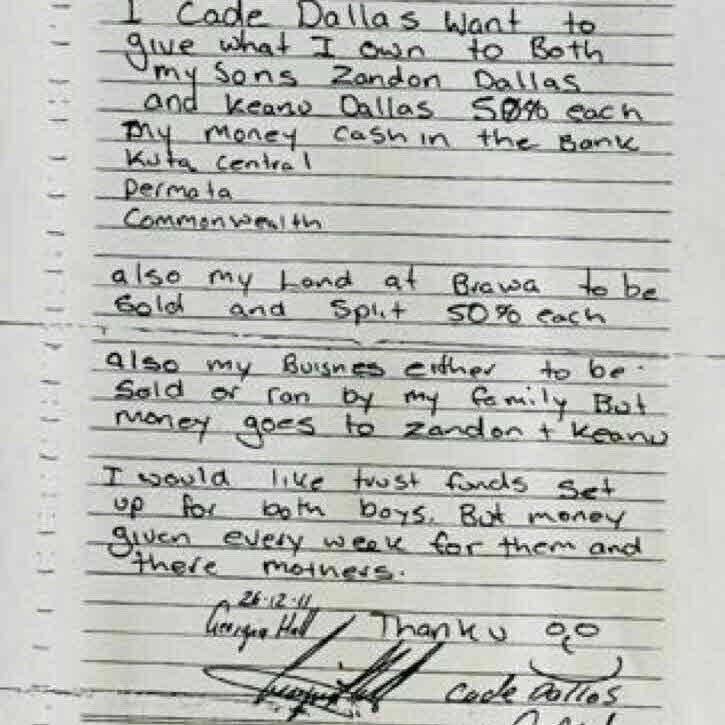 I Cade Dallas want to
give what I own to Both
my Sons Zandon Dallas
and Keanu Dallas 50% each
my money cash in the Bank
Kuta Central
Permata
Commonwealth
also my Land at Brawa to be
Sold and Split 50% each
also my Buisnes either to be
Sold or ran by my family But
money goes to Zandon + Keanu
I would like trust funds set
up for both boys. But money
given every week for them and
there mothers.
26.12.11
Georgina Hall Thank u
Cade Dallas